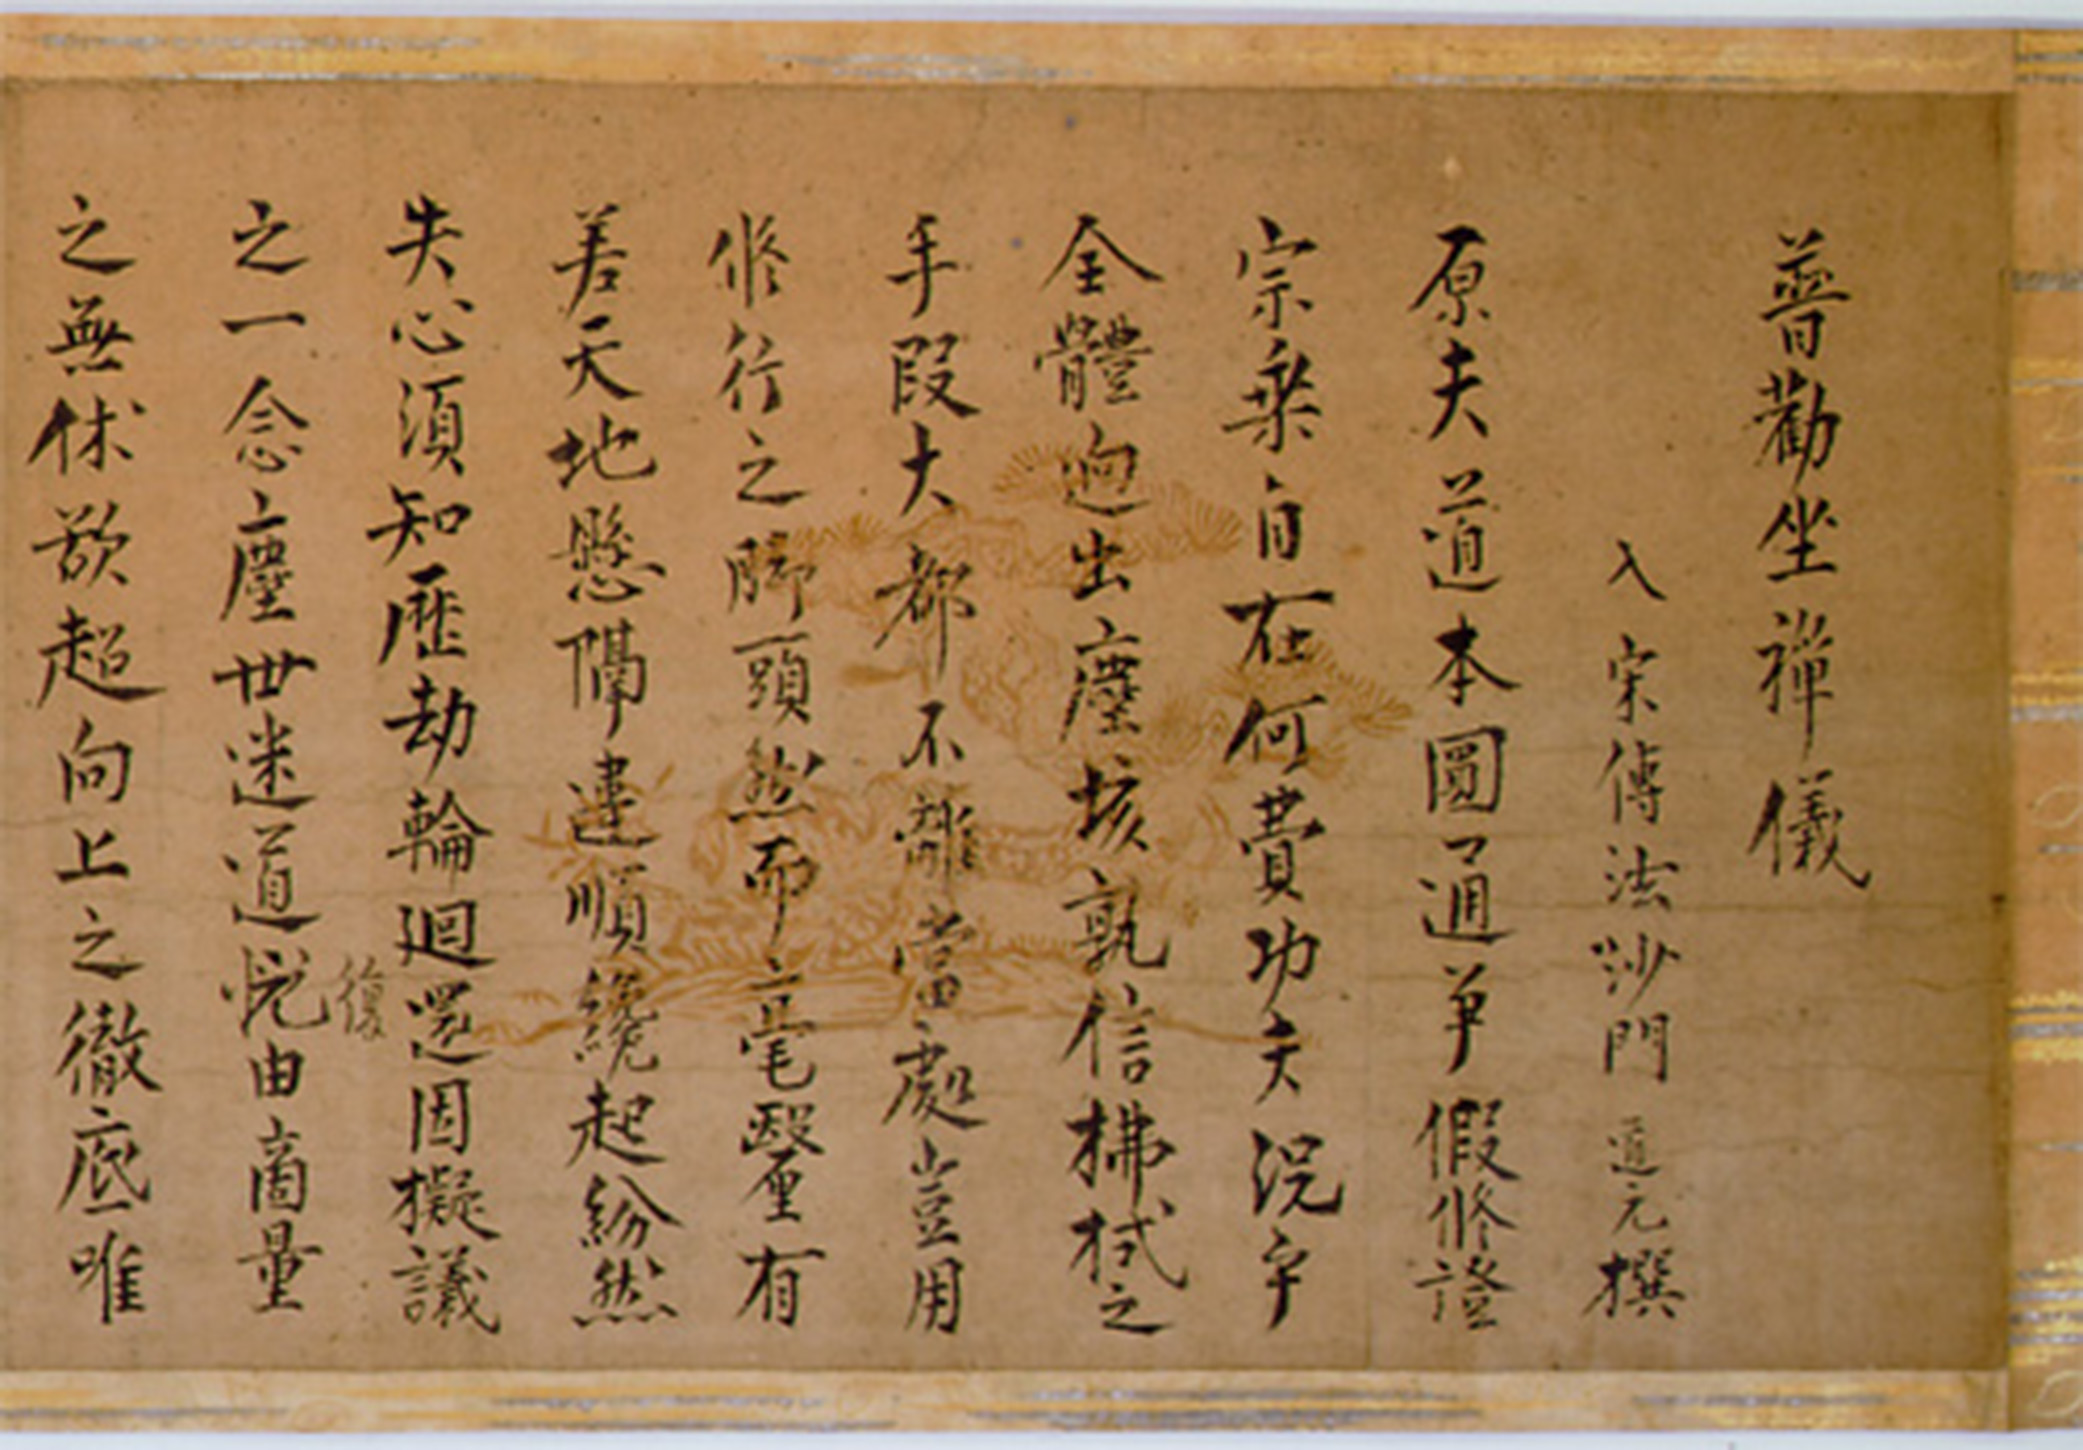 普勸坐禪儀
入宋傳法沙門道元撰
原夫道本圓通争假修證
宗乘自在何費功夫況乎
全體逈出塵埃孰信拂拭之
手段大都不離當處豈用
修行之脚頭然而毫釐有
差天地懸隔違順纔起紛然
失心須知歷劫輪迴還因擬議
之一念塵世迷道復由商量
之無休欲超向上之徹底唯